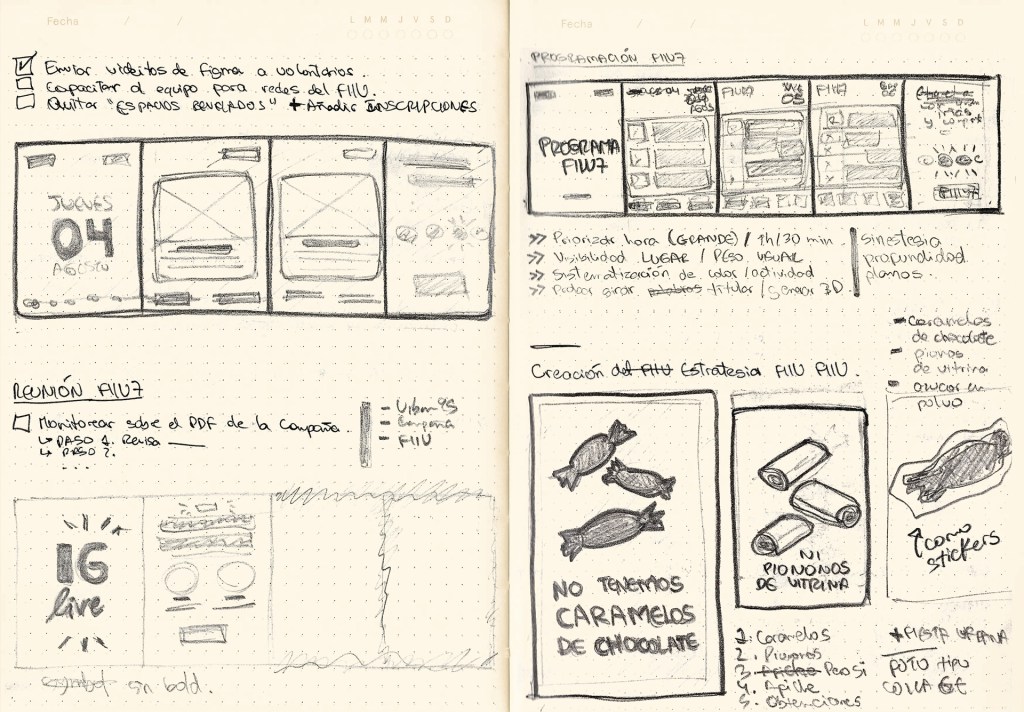 Fecha / /
L M M J V S D
Enviar videitos de figma a voluntarios.
Capacitar al equipo para redes del FIIU.
Quitar "ESPACIOS REVELADOS" + Añadir INSCRIPCIONES
JUEVES
04
AGOSTO
REUNIÓN FIIU7
Monitorear sobre el PDF de la Campaña.
↳ PASO 1. Revisa
↳ PASO 2.
...
- Urban 95
- Campaña
- FIIU
IG
live
sin bold.
Fecha / /
L M M J V S D
PROGRAMACIÓN FIIU7
PROGRAMA
FIIU7
FIIU7
05
FIIU7
FIIU7
>> Priorizar hora (GRANDE) / 1h/30 min.
>> Visibilidad LUGAR / PESO VISUAL
>> Sistematización de color/actividad
>> titular / generar 3D.
sinestesia
profundidad
planos.
- Caramelos
de chocolate
- pionos
de vitrina
- azucar en
polvo
Creación del FIIU Estrategia FIIU FIIU.
NO TENEMOS
CARAMELOS
DE CHOCOLATE
NI
PIONONOS
DE VITRINA
como
stickers
1. Caramelos
2. Pionos
3. Apiche
4. Apiche
5. Obtenciones
+ FIESTA URBANA
POTO tipo